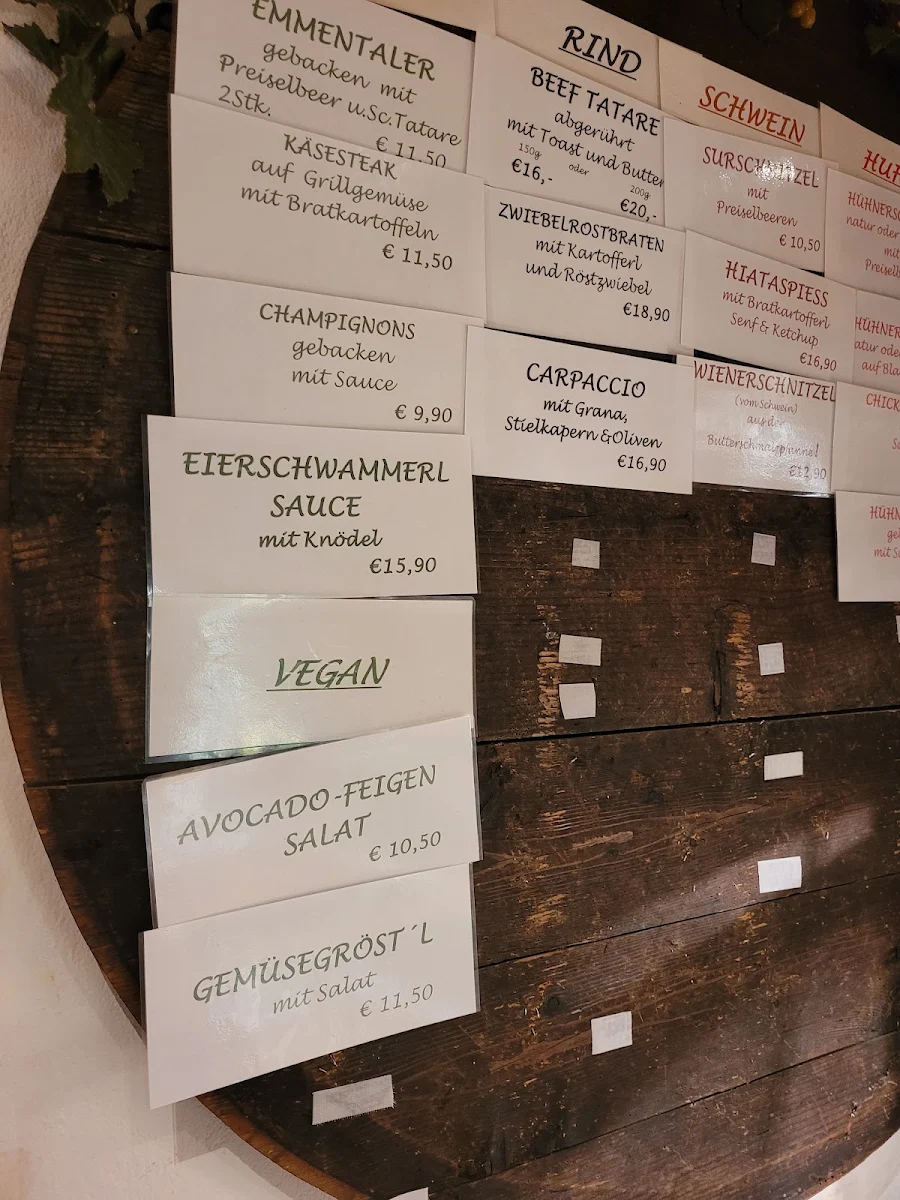 EMMENTALER
gebacken mit
Preiselbeer u.Sc.Tatare
2Stk.
€ 11,50
KÄSESTEAK
auf Grillgemüse
mit Bratkartoffeln
€ 11,50
CHAMPIGNONS
gebacken
mit Sauce
€ 9,90
EIERSCHWAMMERL
SAUCE
mit Knödel
€15,90
VEGAN
AVOCADO-FEIGEN
SALAT
€ 10,50
GEMÜSEGRÖST´L
mit Salat
€ 11,50
RIND
BEEF TATARE
abgerührt
mit Toast und Butter
150g oder 200g
€16,- €20,-
ZWIEBELROSTBRATEN
mit Kartofferl
und Röstzwiebel
€18,90
CARPACCIO
mit Grana,
Stielkapern &Oliven
€16,90
SCHWEIN
SURSCHNITZEL
mit
Preiselbeeren
€ 10,50
HIATASPIESS
mit Bratkartofferl
Senf & Ketchup
€16,90
WIENERSCHNITZEL
(vom Schwein)
aus der
Butterschmalzpfanne!
€12,90
natur oder
mit
auf
CHICK
mit